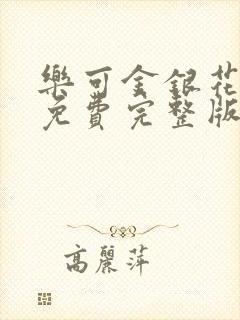 樂可金銀花
免費完整版
高麗萍